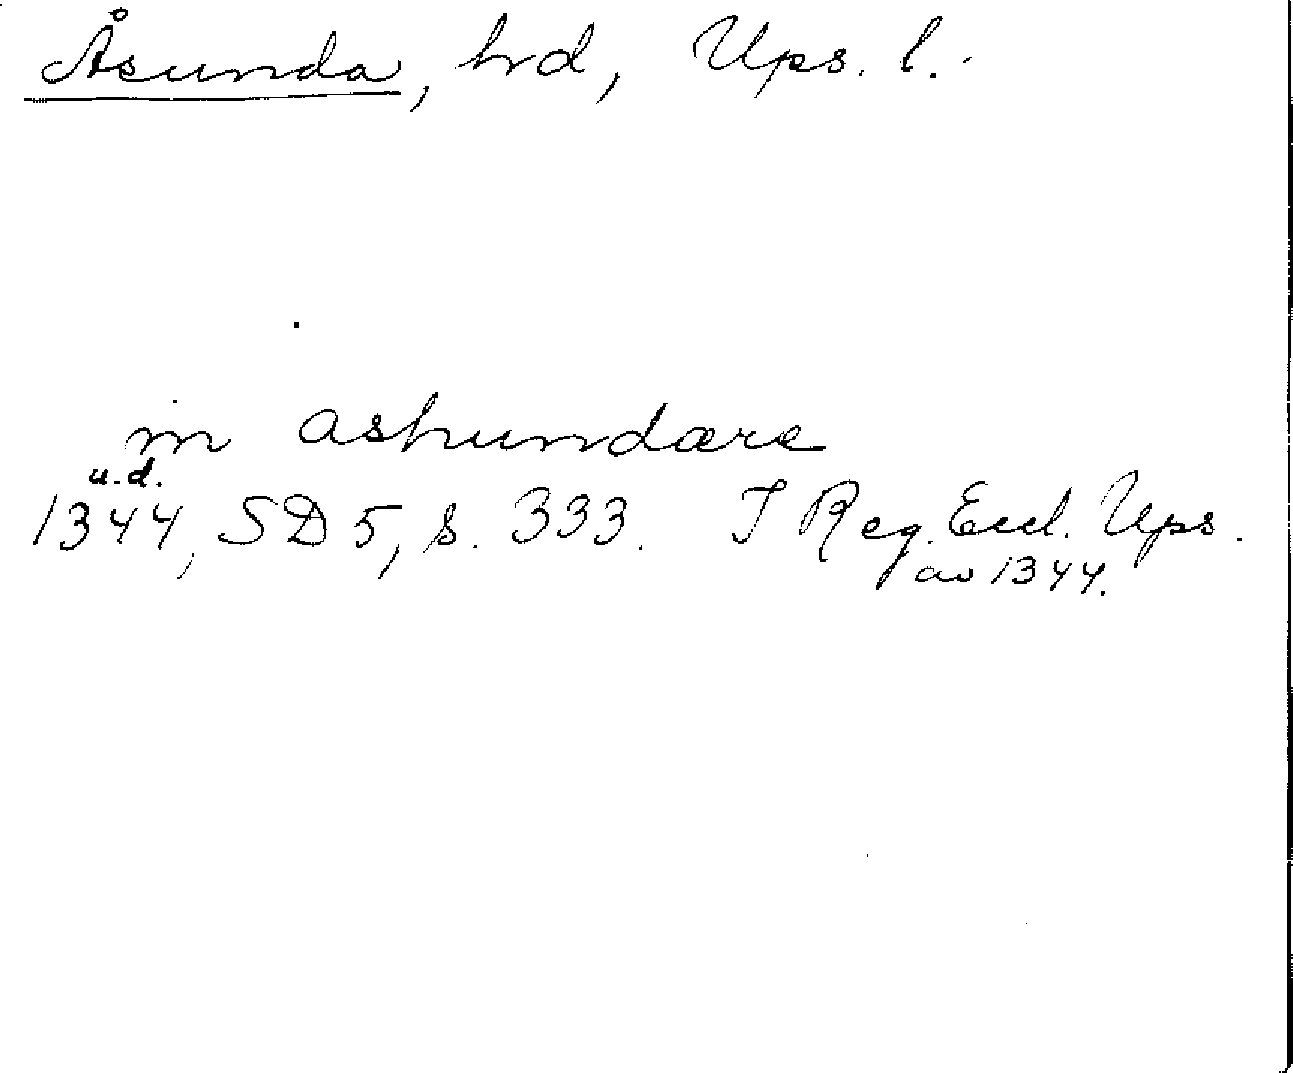 Åsunda, hrd, Ups. l.
in ashundære
u.d.
1344, SD 5, s. 333. I Reg. Eccl. Ups.
av 1344.